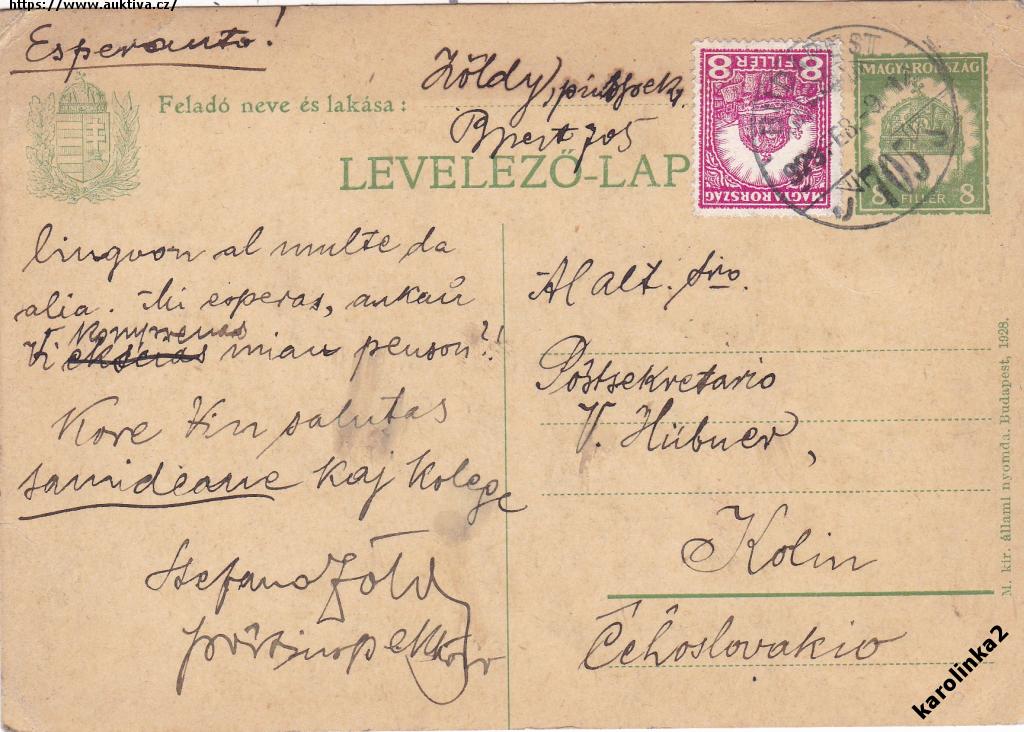 https://www.auktiva.cz/
Esperanto!
Feladó neve és lakása:
Zöldy,
Bpest 705
LEVELEZŐ-LAP
8 FILLÉR 8
MAGYARORSZÁG
MAGYARORSZÁG
8 FILLÉR 8
705
lingvon al multe da
alia. Mi esperas, ankaŭ
Vi komprenas mian penson?!
Kore Vin salutas
samideane kaj kolege
Stefano
Al alt. sro.
Postsekretario
V. Hübner,
Kolin
Ĉehoslovakio
M. kir. állami nyomda. Budapest, 1928.
karolinka2